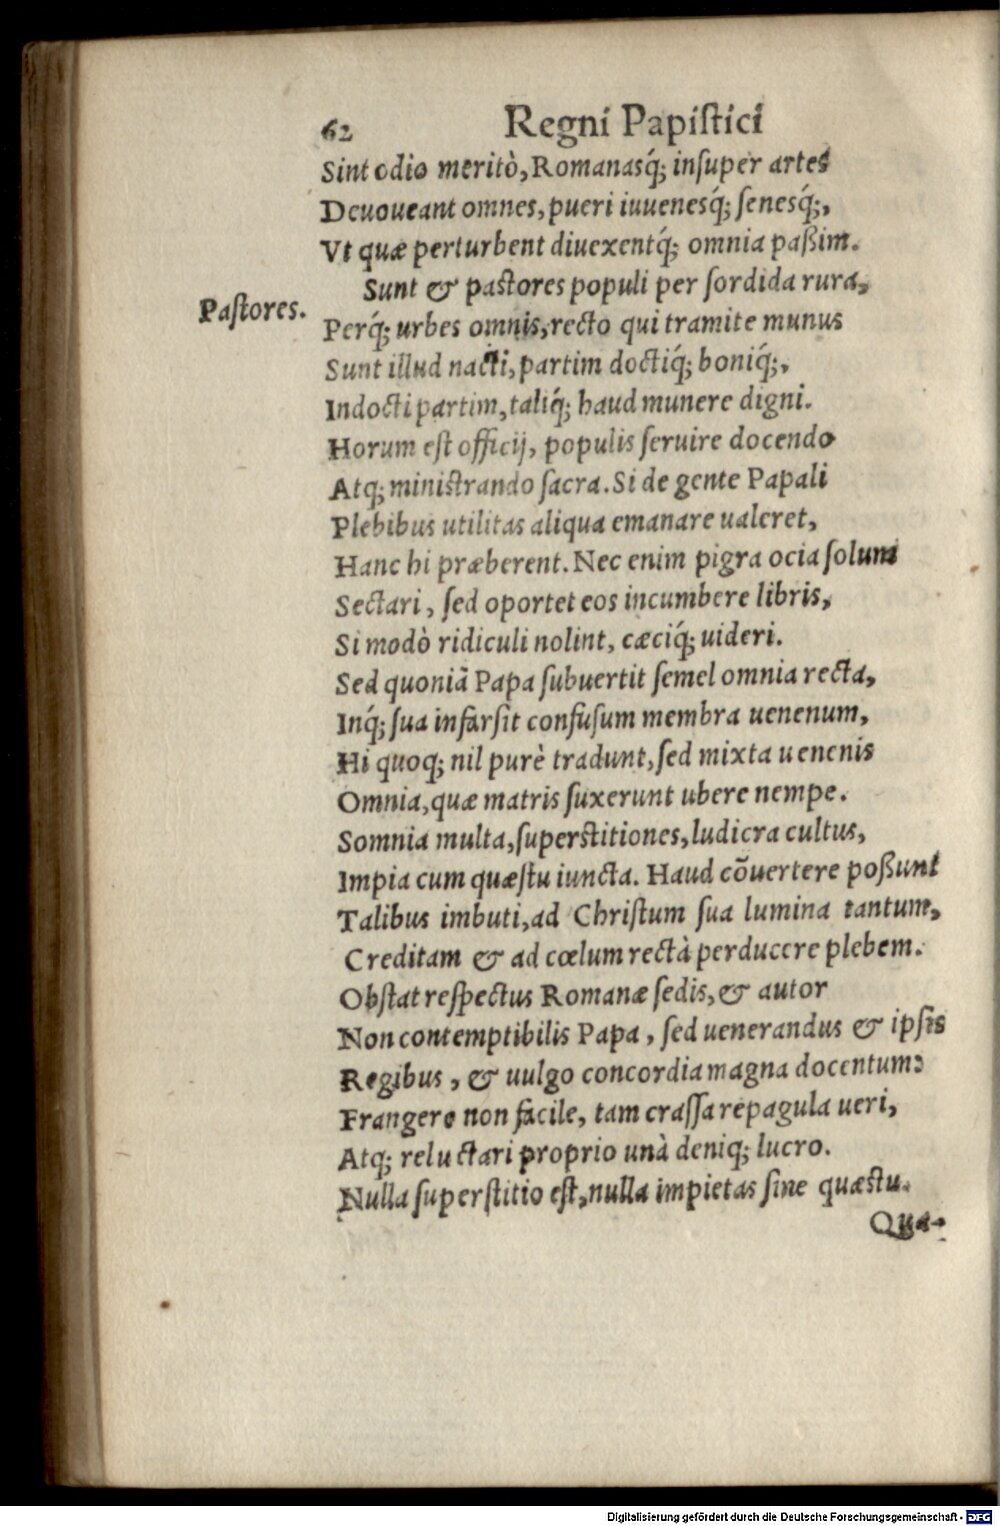 62 Regni Papistici
Sint odio meritò, Romanasq́; insuper artes
Deuoueant omnes, pueri iuuenesq́; senesq́;,
Vt quæ perturbent diuexentq́; omnia paßim.
Sunt & pastores populi per sordida rura,
Pastores.
Perq́; urbes omnis, recto qui tramite munus
Sunt illud nacti, partim doctiq́; boniq́;,
Indocti partim, taliq́; haud munere digni.
Horum est officij, populis seruire docendo
Atq; ministrando sacra. Si de gente Papali
Plebibus utilitas aliqua emanare ualeret,
Hanc hi præberent. Nec enim pigra ocia solum
Sectari, sed oportet eos incumbere libris,
Si modò ridiculi nolint, cæciq́; uideri.
Sed quoniã Papa subuertit semel omnia recta,
Inq́; sua infarsit confusum membra uenenum,
Hi quoq; nil purè tradunt, sed mixta uenenis
Omnia, quæ matris suxerunt ubere nempe.
Somnia multa, superstitiones, ludicra cultus,
Impia cum quæstu iuncta. Haud cõuertere poßunt
Talibus imbuti, ad Christum sua lumina tantum,
Creditam & ad cœlum rectà perducere plebem.
Obstat respectus Romanæ sedis, & autor
Non contemptibilis Papa, sed uenerandus & ipsis
Regibus, & uulgo concordia magna docentum:
Frangere non facile, tam crassa repagula ueri,
Atq; reluctari proprio unà deniq; lucro.
Nulla superstitio est, nulla impietas sine quæstu.
Qua-
Digitalisierung gefördert durch die Deutsche Forschungsgemeinschaft - DFG